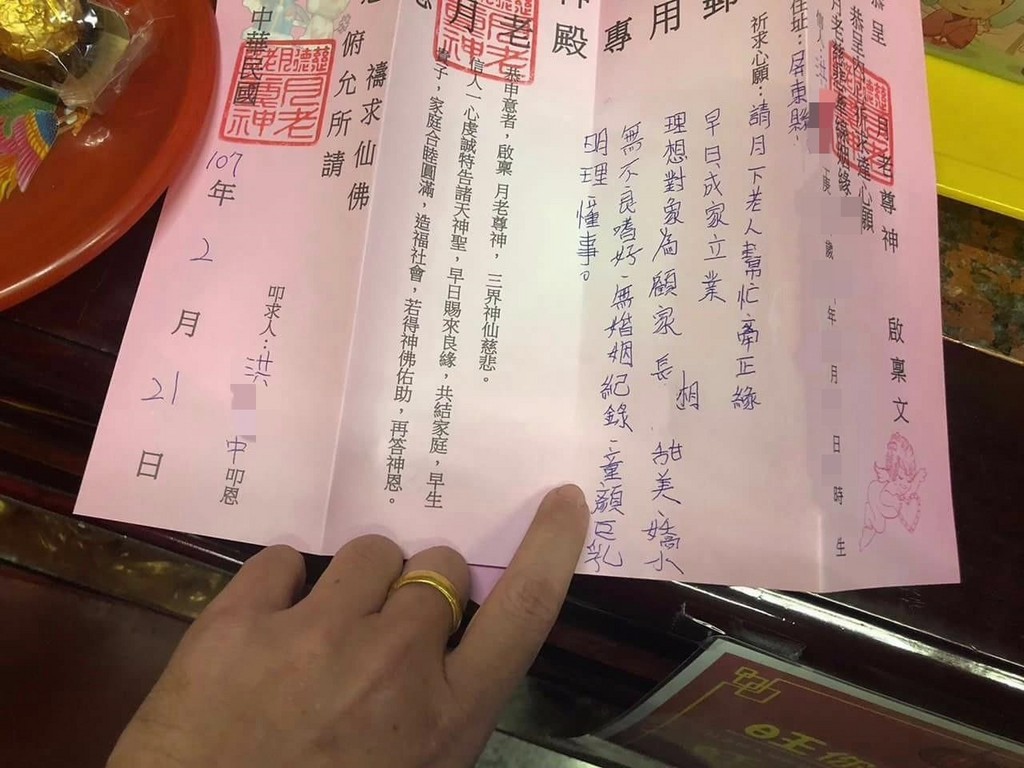 恭呈
月老尊神　啟稟文
恭呈內心祈求達心願
月老慈悲牽線姻緣
信人：洪　歲　年　月　日　時生
住址：屏東縣
祈求心願：請月下老人幫忙牽正緣
早日成家立業
理想對象為顧家、長相甜美、嬌小
無不良嗜好、無婚姻紀錄、童顏巨乳
明理、懂事。
專用
殿
恭申意者，啟稟 月老尊神，三界神仙慈悲。
信人一心虔誠特告諸天神聖，早日賜來良緣，共結家庭，早生
貴子，家庭合睦圓滿，造福社會，若得神佛佑助，再答神恩。
月老
禱求仙佛
俯允所請
叩求人：洪　中叩恩
中華民國107年2月21日